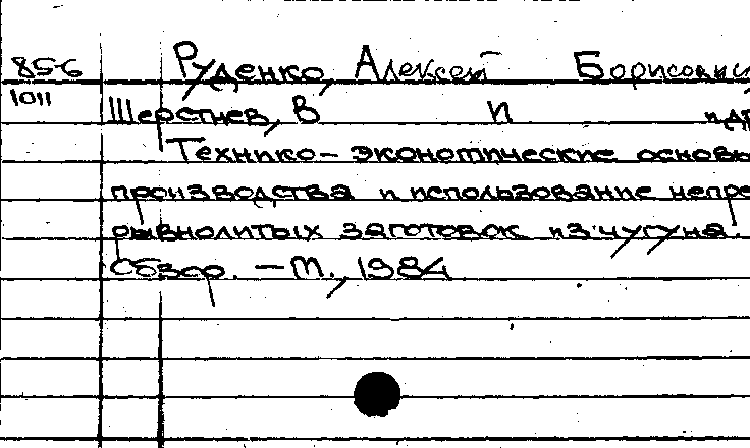 856 Руденко, Алексей Борисович
1011 Шерстнев, В П и др
Технико-экономические основы
производства и использование непре
рывнолитых заготовок из чугуна.
Обзор. - М., 1984